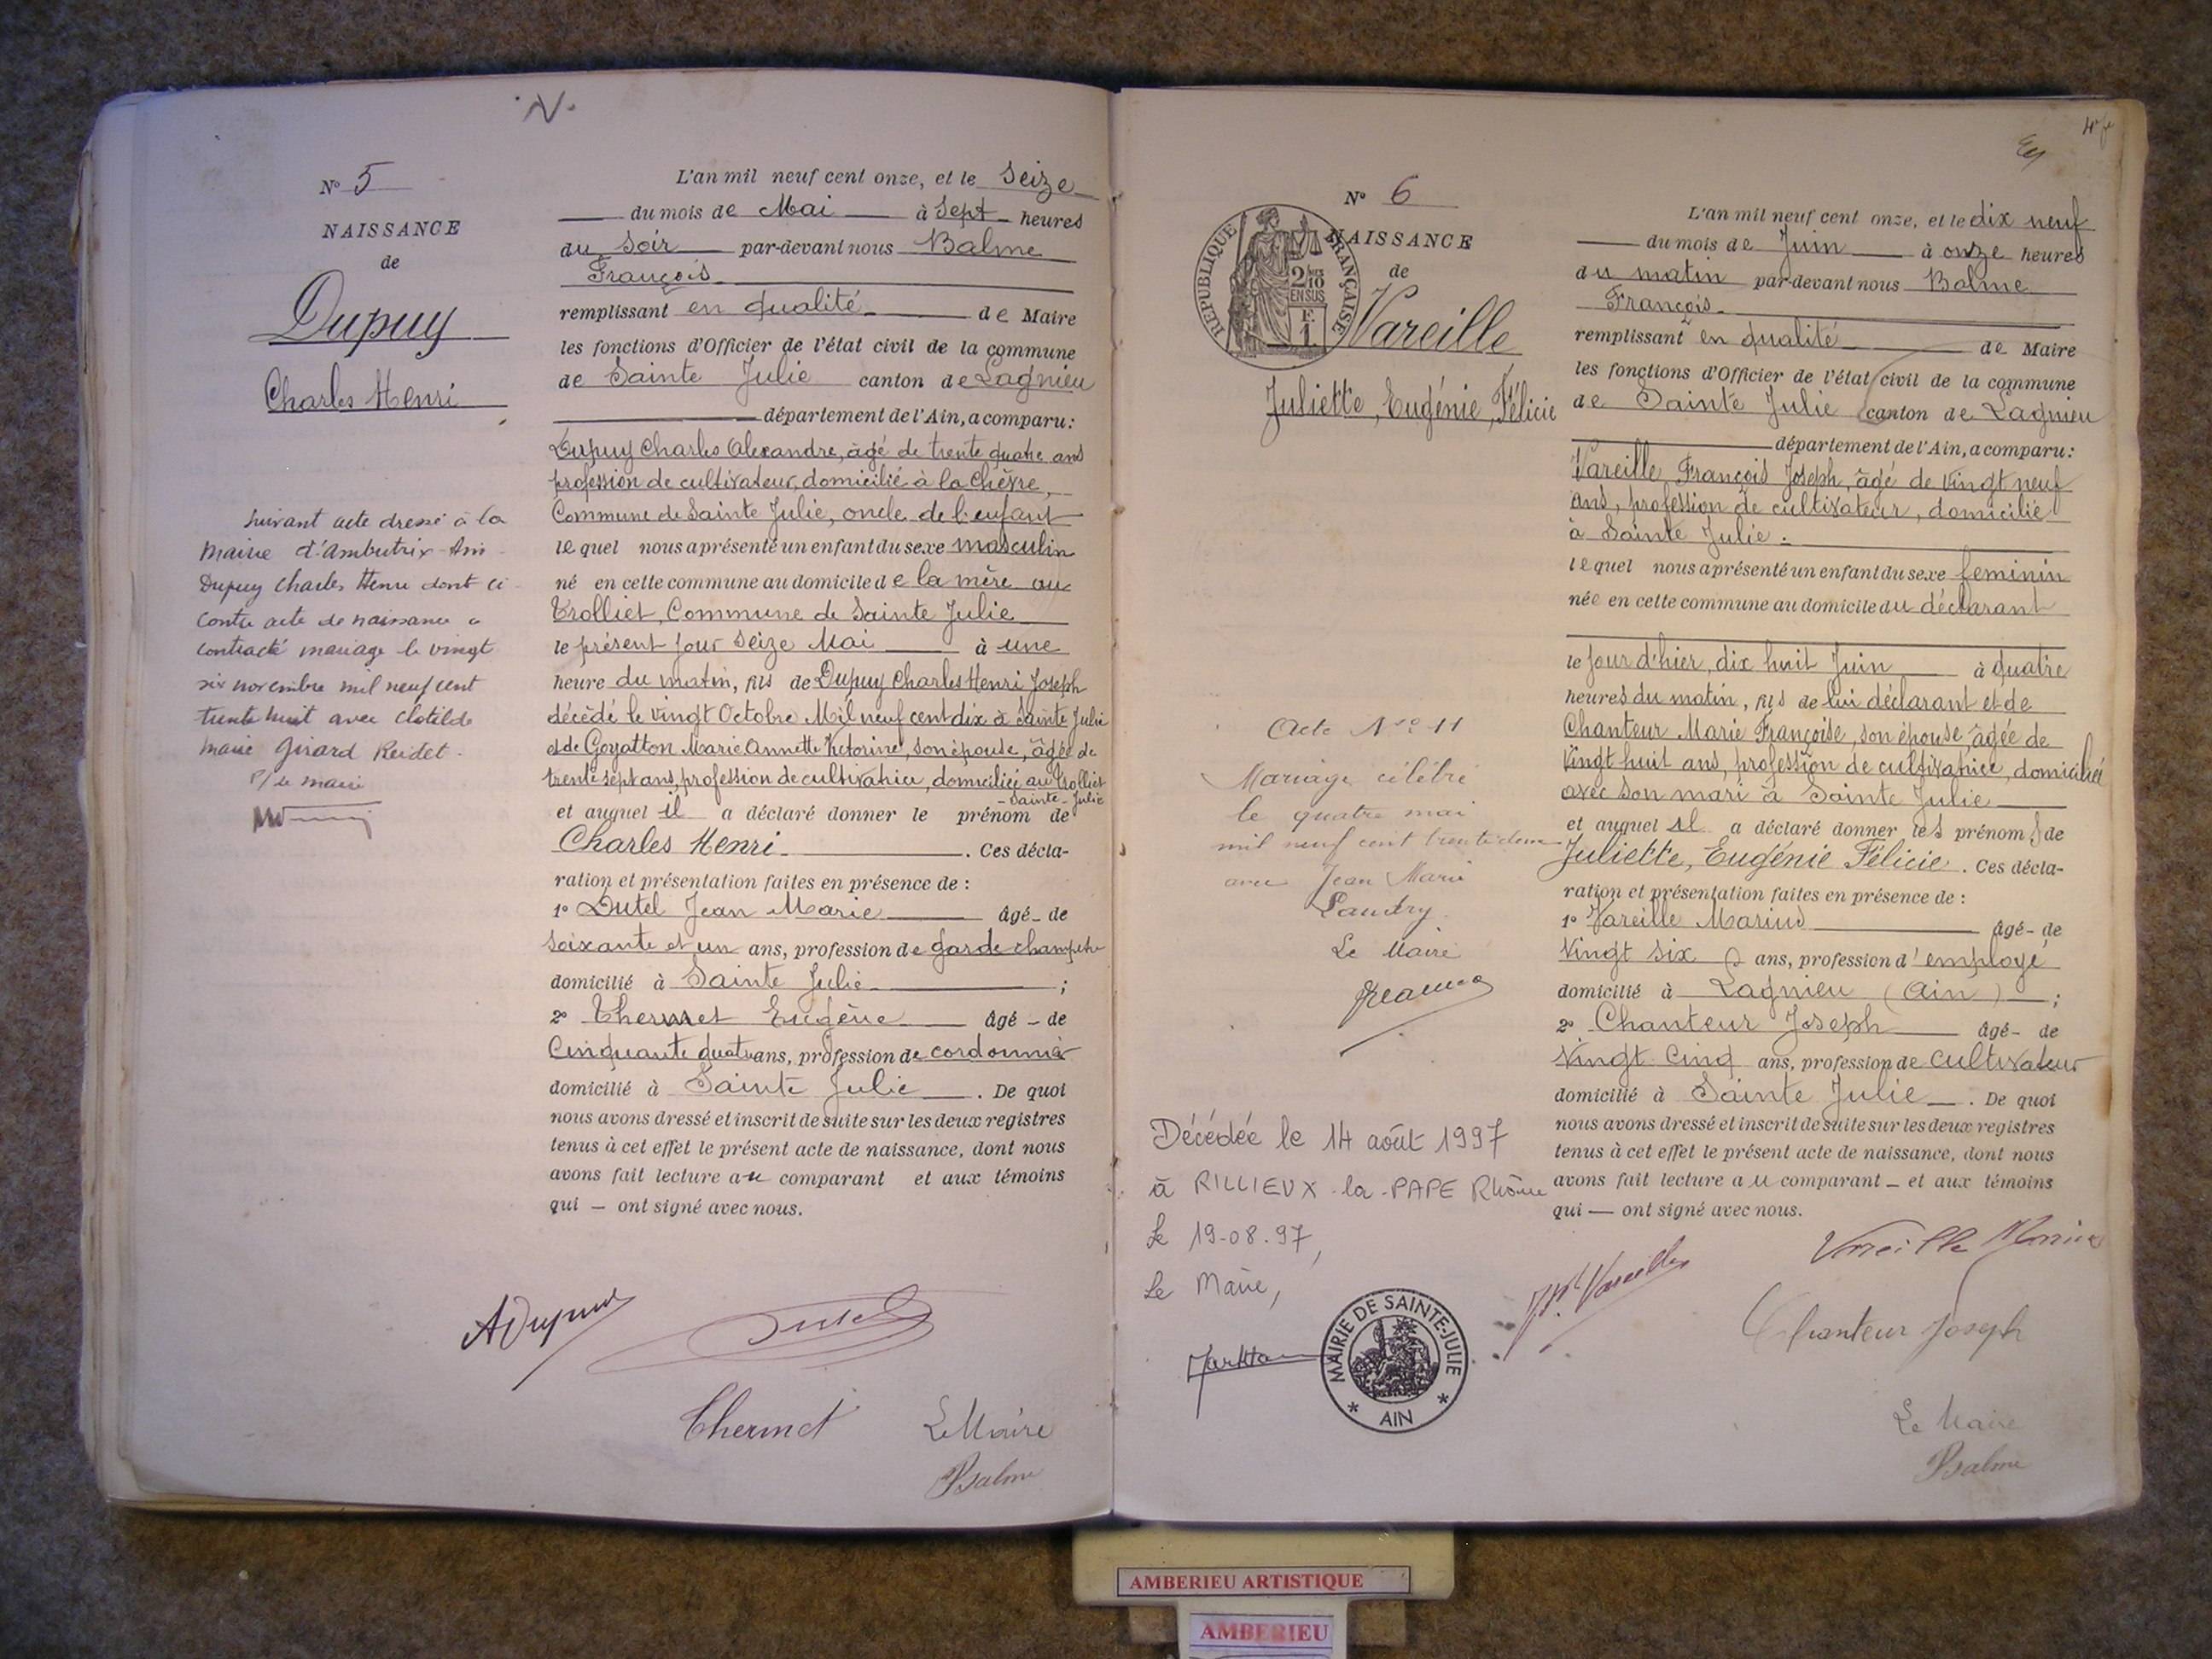 N° 5
NAISSANCE
de
Dupuy
Charles Henri
suivant acte dressé à la
mairie d'Ambutrix-Ain
Dupuy Charles Henri dont ci-
contre acte de naissance a
contracté mariage le vingt
six novembre mil neuf cent
trente huit avec Clotilde
Marie Girard Reydet.
P/ le maire
L'an mil neuf cent onze, et le Seize
du mois de Mai à Sept heures
du soir par-devant nous Balme
François
remplissant en qualité de Maire
les fonctions d'Officier de l'état civil de la commune
de Sainte Julie canton de Lagnieu
département de l'Ain, a comparu:
Dupuy Charles Alexandre, âgé de trente quatre ans
profession de cultivateur, domicilié à la Chèvre,
Commune de Sainte Julie, oncle de l'enfant
lequel nous a présenté un enfant du sexe masculin
né en cette commune au domicile de la mère au
Trolliet, Commune de Sainte Julie
le présent jour seize Mai à une
heure du matin, fils de Dupuy Charles Henri Joseph
décédé le vingt Octobre Mil neuf cent dix à Sainte Julie
et de Goyatton Marie Annette Victorine, son épouse, âgée de
trente sept ans, profession de cultivatrice, domiciliée au Trolliet
- Sainte-Julie
et auquel il a déclaré donner le prénom de
Charles Henri. Ces décla-
ration et présentation faites en présence de :
1° Dutel Jean Marie âgé de
soixante et un ans, profession de garde champêtre
domicilié à Sainte Julie ;
2° Thermet Eugène âgé de
Cinquante quatre ans, profession de cordonnier
domicilié à Sainte Julie. De quoi
nous avons dressé et inscrit de suite sur les deux registres
tenus à cet effet le présent acte de naissance, dont nous
avons fait lecture au comparant et aux témoins
qui — ont signé avec nous.
ADupuy
Dutel
Thermet
Le Maire
Balme
N° 6
NAISSANCE
de
RÉPUBLIQUE FRANÇAISE
2/10
EN SUS
F.
1
Vareille
Juliette, Eugénie, Félicie
Acte N° 11
Mariage célébré
le quatre mai
mil neuf cent trente deux
avec Jean Marie
Landry
Le Maire
Décédée le 14 août 1997
à RILLIEUX-la-PAPE Rhône
Le 19-08-97,
Le Maire,
MAIRIE DE SAINTE-JULIE
* AIN *
L'an mil neuf cent onze, et le dix neuf
du mois de Juin à onze heures
du matin par-devant nous Balme
François
remplissant en qualité de Maire
les fonctions d'Officier de l'état civil de la commune
de Sainte Julie canton de Lagnieu
département de l'Ain, a comparu:
Vareille François Joseph, âgé de vingt neuf
ans, profession de cultivateur, domicilié
à Sainte Julie.
lequel nous a présenté un enfant du sexe feminin
née en cette commune au domicile du déclarant
le jour d'hier, dix huit Juin à quatre
heures du matin, fils de lui déclarant et de
Chanteur Marie Françoise, son épouse, âgée de
Vingt huit ans, profession de cultivatrice, domiciliée
avec son mari à Sainte Julie
et auquel il a déclaré donner les prénoms de
Juliette, Eugénie Félicie. Ces décla-
ration et présentation faites en présence de :
1° Vareille Marius âgé de
Vingt six ans, profession d'employé
domicilié à Lagnieu (Ain) ;
2° Chanteur Joseph âgé de
Vingt Cinq ans, profession de cultivateur
domicilié à Sainte Julie. De quoi
nous avons dressé et inscrit de suite sur les deux registres
tenus à cet effet le présent acte de naissance, dont nous
avons fait lecture au comparant — et aux témoins
qui — ont signé avec nous.
Vareille Marius
Vareille
Chanteur Joseph
Le Maire
Balme
AMBERIEU ARTISTIQUE
AMBERIEU